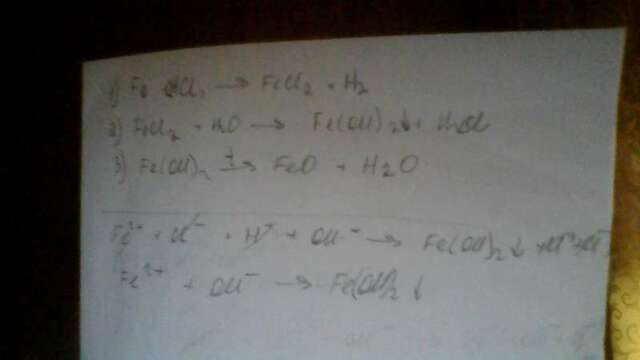 1) Fe + HCl → FeCl₂ + H₂
2) FeCl₂ + H₂O → Fe(OH)₂↓ +
3) Fe(OH)₂ t→ FeO + H₂O
Fe²⁺ + Cl⁻ + H⁺ + OH⁻ → Fe(OH)₂↓ + H⁺ + Cl⁻
Fe²⁺ + OH⁻ → Fe(OH)₂↓